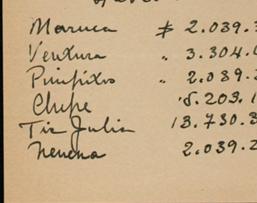 Maruca $ 2.039.3
Ventura " 3.304.
Pinpitos " 2.039.2
Chepe 5.203.1
Tia Julia 13.730.3
Nenena 2.039.2